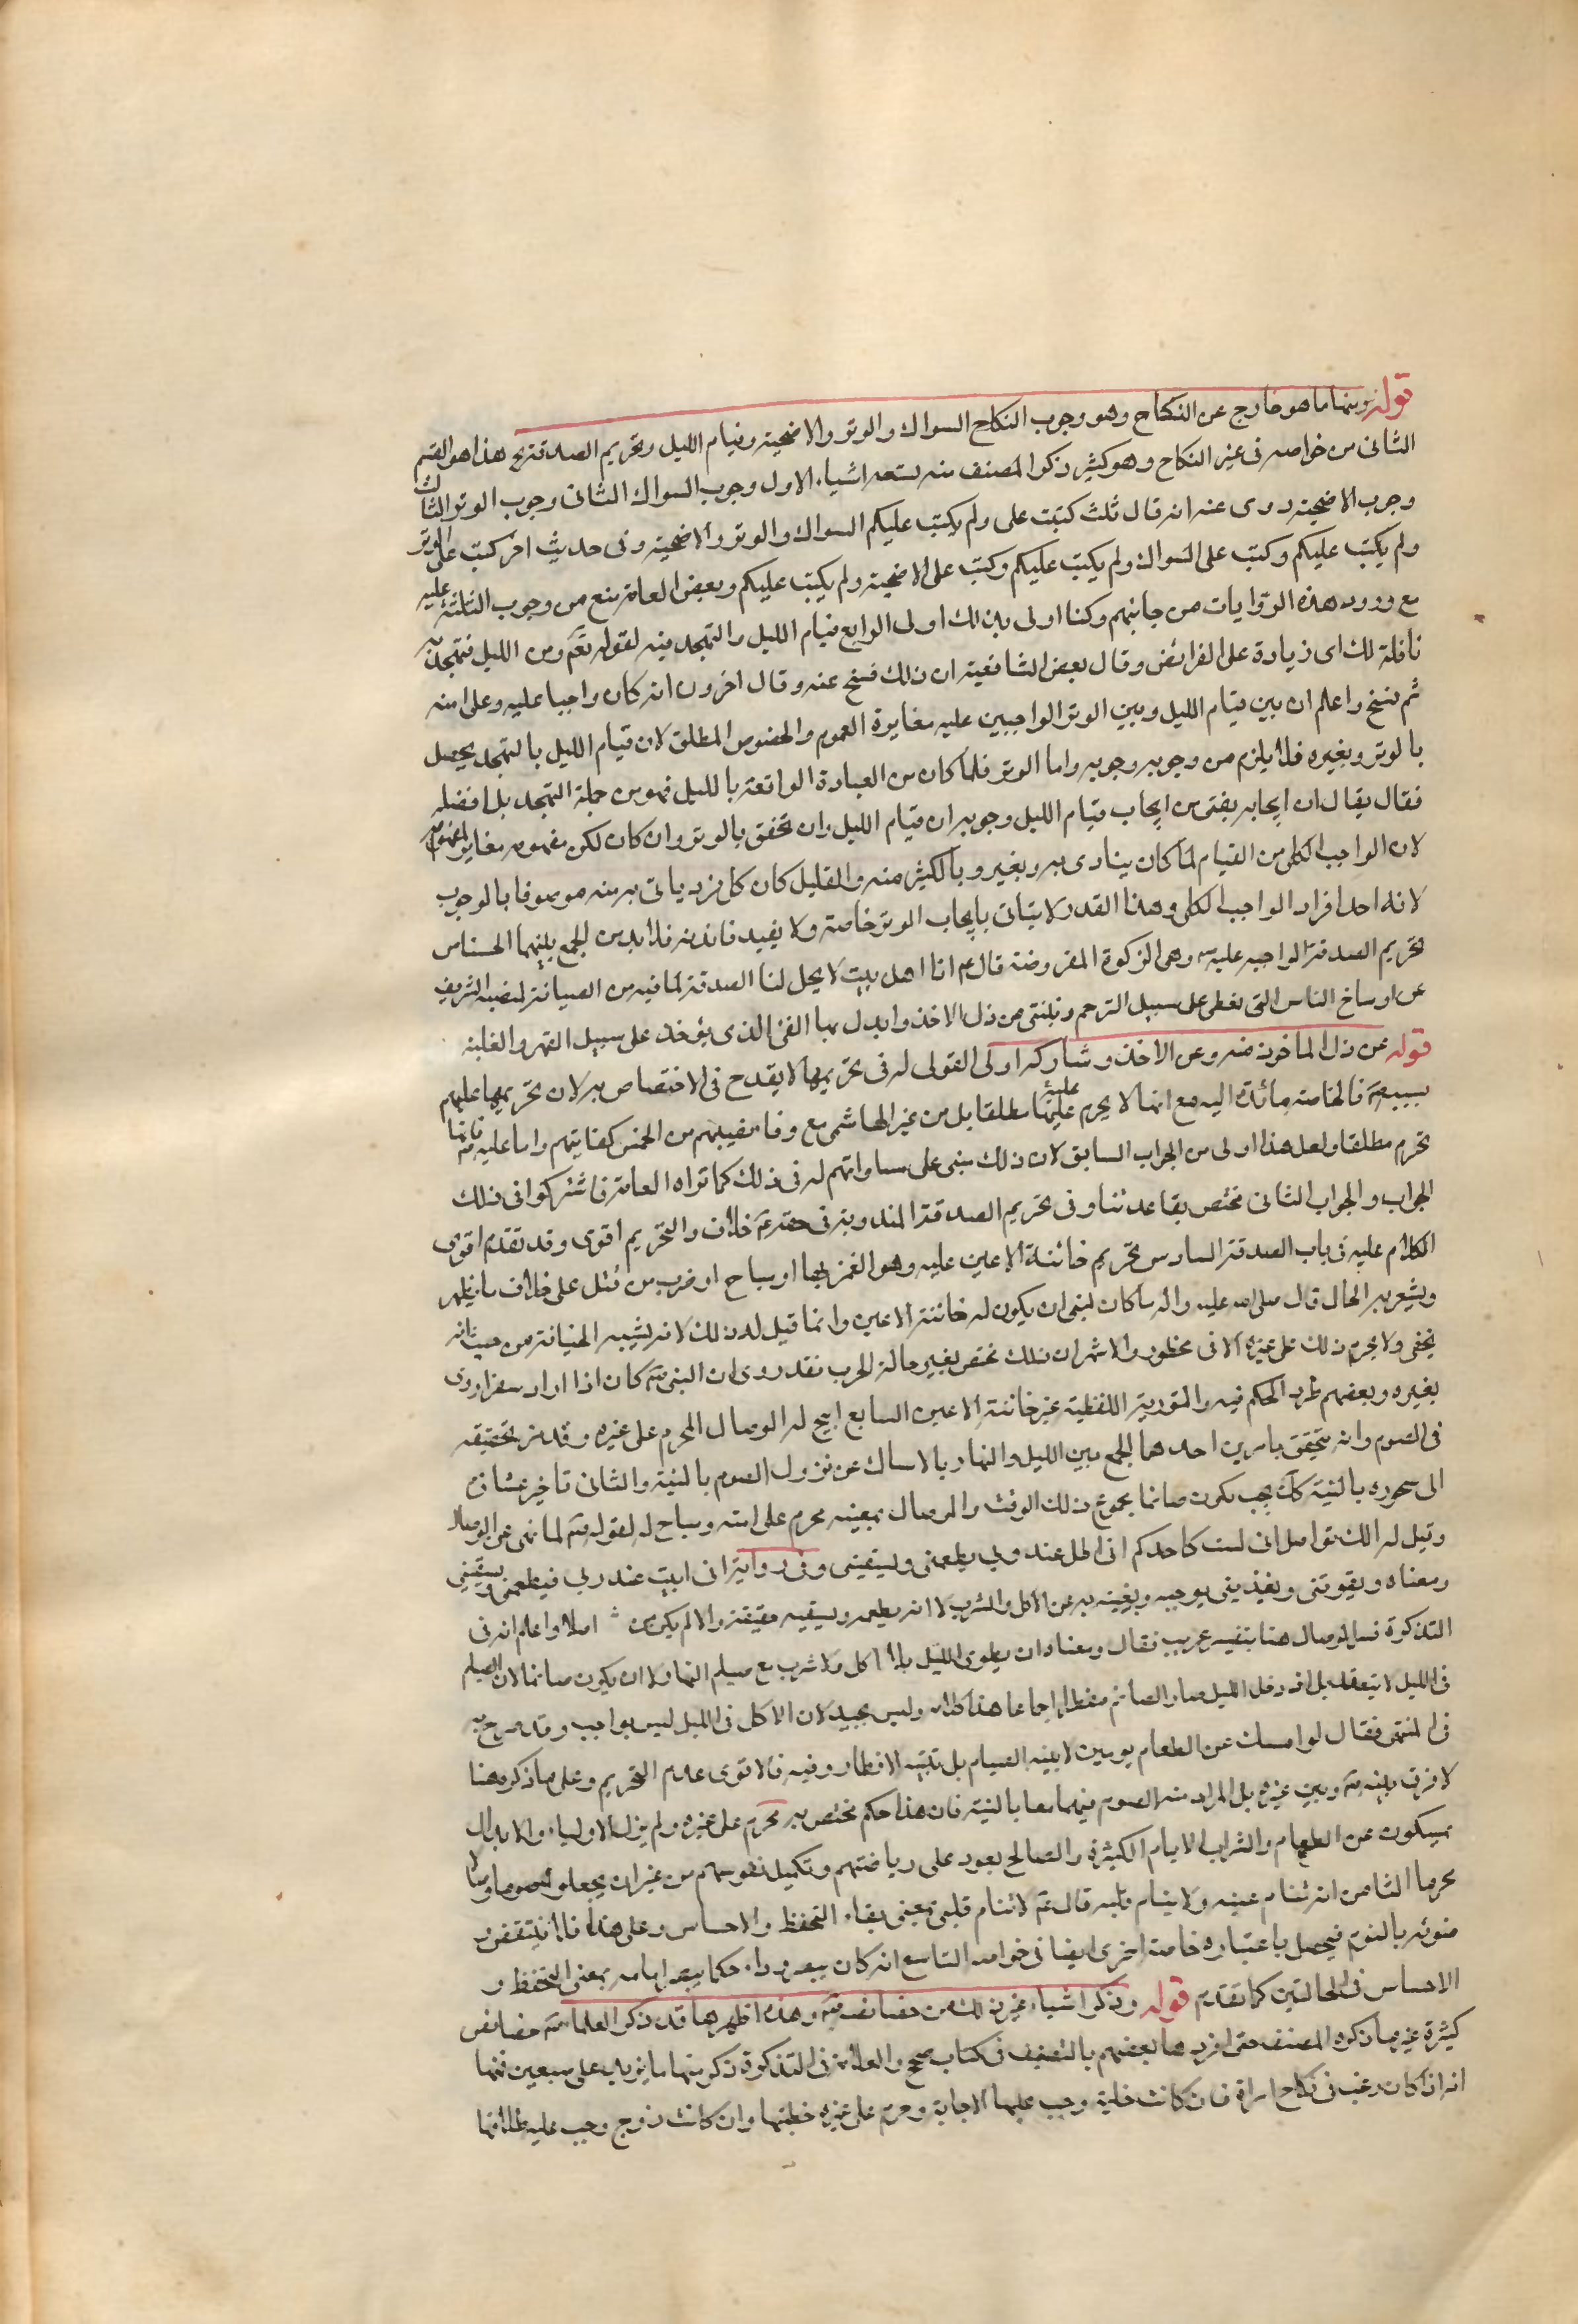 قوله ومنها ما هو خارج عن النكاح وهو وجوب النكاح السواك والوتر والاضحية وقيام الليل وتحريم الصدقة هذا هو القسم
الثاني من خواصه في غير النكاح وهو كثير ذكر المصنف منه تسعة اشياء الاول وجوب السواك الثاني وجوب الوتر الثالث
وجوب الاضحية روى عنه انه قال ثلث كتبت على ولم يكتب عليكم السواك والوتر والاضحية وفى حديث اخر كتب على الوتر
ولم يكتب عليكم وكتب على السواك ولم يكتب عليكم وكتب على الاضحية ولم يكتب عليكم وبعض العامة منع من وجوب الثلثة عليه
مع ورود هذه الروايات من جانبهم وكنا اولى بذلك اولى الرابع قيام الليل والتهجد فيه لقوله تعم ومن الليل فتهجد به
نافلة لك اى زيادة على الفرائض وقال بعض الشافعية ان ذلك نسخ عنه وقال اخرون انه كان واجبا عليه وعلى امته
ثم نسخ واعلم ان بين قيام الليل وبين الوتر الواجبين عليه مغايرة العموم والخصوص المطلق لان قيام الليل بالتهجد يحصل
بالوتر وبغيره فلا يلزم من وجوبه وجوبه واما الوتر فلما كان من العبادة الواقعة بالليل فهو من جملة التهجد بل افضله
فقال يقال ان ايجابه يغنى من ايجاب قيام الليل وجوبه ان قيام الليل وان تحقق بالوتر وان كان لكن مفهومه مغاير لمفهومه
لان الواجب الكلى من القيام لما كان يتادى به وبغيره وبالكثير منه والقليل كان كل فرد ياتى به منه موصوفا بالوجوب
لانه احد افراد الواجب الكلى وهذا القدر لا يتاتى بايجاب الوتر خاصة ولا يفيد فائدته فلا بد من الجمع بينهما الخامس
تحريم الصدقة الواجبه عليه وهى الزكوة المفروضة قال انا اهل بيت لا يحل لنا الصدقة لما فيه من الصيانة لمنصبه الشريف
عن اوساخ الناس التى تعطى على سبيل الترحم وتبتنى من ذل الاخذ وابدل بها الفئ الذى يؤخذ على سبيل القهر والغلبة
قوله عن ذل الماخوذ منه وعن الاخذ وشاركه اولى القربى له فى تحريمها لا يقدح فى الاختصاص به لان تحريمها عليهم
بسببه فالخاصة عائدة اليه مع انها لا يحرم عليهم مطلقا بل من غير الهاشمى مع وفا نصيبهم من الخمس كفايتهم واما عليه فانها
تحرم مطلقا ولعل هذا اولى من الجواب السابق لان ذلك مبنى على مساواتهم له فى ذلك كما تراه العامة فاشتركوا فى ذلك
الجواب والجواب الثانى مختص بقاعدتنا وفى تحريم الصدقة المندوبة فى حقه خلاف والتحريم اقوى وقد تقدم اقوى
الكلام عليه فى باب الصدقة السادس تحريم خائنة الاعين عليه وهو الغمز بها او مباح او ضرب من قتل على خلاف ما يظهر
ويشعر به الحال قال صلى الله عليه واله ما كان لنبى ان يكون له خائنة الاعين وانما قيل له ذلك لانه يشبه الخيانة من حيث انه
يخفى ولا يحرم ذلك على غيره الا فى محظور والاشهر ان ذلك مختص بغير حالة الحرب فقد روى ان النبى كان اذا اراد سفرا ورى
بغيره وبعضهم طرد الحكم فيه والتورية اللفظية غير خائنة الاعين السابع ابيح له الوصال المحرم على غيره وقد مر تحقيقه
فى الصوم وانه يتحقق بامرين احدهما الجمع بين الليل والنهار بالامساك عن نزول الصوم بالنية والثانى تاخير عشائه
الى سحوره بالنية بحيث يكون صائما مجموع ذلك الوقت والوصال بمعنيه محرم على امته ومباح له لقوله لما نهى عن الوصال
وقيل له انك تواصل انى لست كاحدكم انى اظل عند ربى يطعمنى ويسقينى وفى رواية انى ابيت عند ربى فيطعمنى ويسقينى
ومعناه ويقويتنى ويغذينى بوحيه ويغنيه به عن الاكل والشرب لا انه يطعمه ويسقيه حقيقة والا لم يكن اصلا واعلم انه فى
التذكرة فسر الوصال هنا بتفسير غريب فقال ومعناه ان يطوى الليل بلا اكل ولا شرب مع صيام النهار لا ان يكون صائما لان الصيام
فى الليل لا ينعقد بل اذا دخل الليل صار الصائم مفطرا اجماعا هذا كلامه وليس بجيد لان الاكل فى الليل ليس بواجب وقد صرح به
فى المنتهى فقال لو امسك عن الطعام يومين لا بنية الصيام بل بنية الافطار وفيه فالاقوى عدم التحريم وعلى ما ذكره هنا
لا فرق بينه وبين غيره بل المراد منه الصوم فيهما معا بالنية فان هذا حكم مختص به محرم على غيره ولم يزل الاولياء والابدال
يمسكون عن الطعام والشراب الايام الكثيرة والصالح يعود على رياضتهم وتكميل نفوسهم من غير ان يجعلوه صوما وصالا
محرما الثامن انه تنام عينه ولا ينام قلبه قال لا تنام قلبى بمعنى بقاء التحفظ والاحساس وعلى هذا فلا ينتقض
ضوئه بالنوم فيحصل باعتباره خاصة اخرى ايضا فى خواصه التاسع انه كان يبصر وراءه كما يبصر امامه بمعنى التحفظ و
الاحساس فى الحالتين كما تقدم قوله وذكر اشياء غير ذلك من خصائصه وهذه اظهرها قد ذكر العلماء خصائص
كثيرة غير ما ذكره المصنف حتى افرد ها بعضهم بالتصنيف فى كتاب ضخم والعلامة فى التذكرة ذكر منها ما يزيد على سبعين فمنها
انه اذا كان رغب فى نكاح امراة فان كانت خلية وجب عليها الاجابة وحرم على غيره خطبتها وان كانت ذوج وجب عليه طلاقها